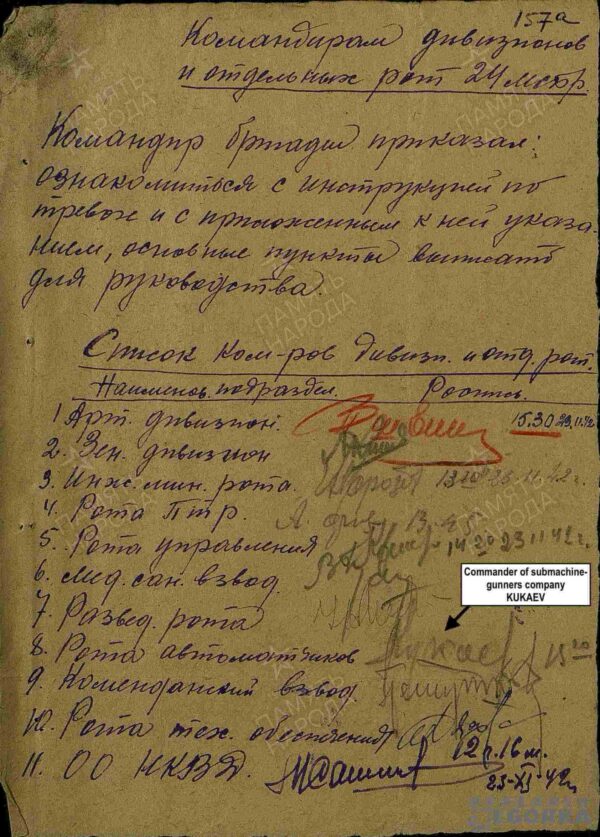 157а
Командирам дивизионов
и отдельных рот 24 мстр.
Командир бригады приказал:
ознакомиться с инструкцией по
тревоге и с приложенным к ней указа-
нием, основные пункты выписать
для руководства.
Список ком-ров дивизн. и отд. рот.
Наименов. подраздел. Роспись.
1 Арт. дивизион. 15.30 23.11.42
2. Зен. дивизион
3. Инж. мин. рота. 23.11.42 г.
4. Рота Птр.
5. Рота управления 14 20 23 11 42 г
6. Мед. сан. взвод.
Commander of submachine-
gunners company
KUKAEV
7. Развед. рота
8. Рота автоматчиков Кукаев 15 20
9. Комендатский взвод
10. Рота тех. обеспечения
11. ОО НКВД. 12 ч. 16 м.
23-XI-42 г.
ПАМЯТЬ
НАРОДА